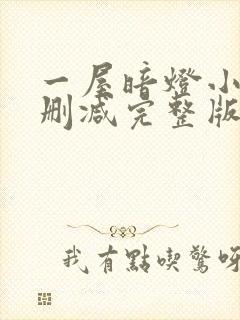 一屋暗燈小
刪減完整版
我有點喫驚呀